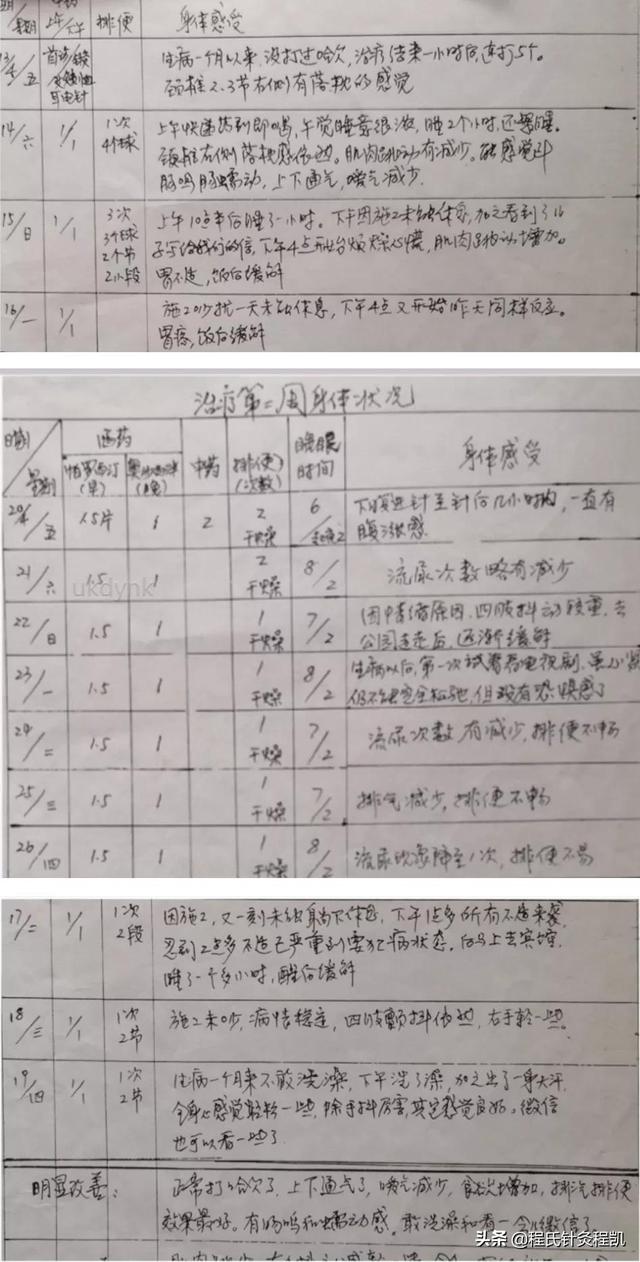 星期 上午/下午 排便 身体感受
13/五
生病一个月以来,没打过哈欠,治疗结束一小时后,连打5个。
颈椎2、3节右侧有落枕的感觉
14/六 1/1 1次 4个球
上午快递药到即喝,午觉睡意很浓,睡2个小时,还要睡。
颈椎右侧落枕感依旧。肌肉跳动有减少。能感觉到
肠鸣肠蠕动,上下通气,嗳气减少.
15/日 1/1 3次 3个球 2个节 2小段
上午10点半后睡了一小时。下午因施工未能休息,加之看到了儿
子写给我们的信,下午4点开始烦燥心慌,肌肉跳动增加。
胃不适,饭后缓解
16/一 1/1
施工吵扰一天未能休息,下午4点又开始昨天同样反应。
胃痛,饭后缓解
治疗第二周身体状况
日期/星期 西药 中药 排便(次数) 睡眠时间 身体感受
帕罗西汀(早) (晚)
20/五 1.5片 1 2 2 干燥 6
下腹进针至针后几小时内,一直有
腹胀感
21/六 1.5 1 2 干燥 8/2 流尿次数略有减少
ukdynk
22/日 1.5 1 1 干燥 7/2
因情绪原因,四肢抖动较重,去
公园走走后,逐渐缓解
23/一 1.5 1 1 干燥 8/2
生病以后,第一次试着看电视剧,虽
仍不能完全松弛,但没有恐惧感了
24/二 1.5 1 1 干燥 7/2 流尿次数有减少,排便不畅
25/三 1.5 1 1 干燥 7/2 排气减少,排便不畅
26/四 1.5 1 1 干燥 8/2 流尿现象降至1次,排便不易
17/二 1/1 1次 2段
因施工,又一刻未能躺下休息,下午1点多所有不适来袭
忍到2点多不适已严重到要犯病状态,后马上去宾馆,
睡了一个多小时,醒后缓解
18/三 1/1 1次 2节
施工未吵,病情稳定,四肢颤抖依然,右手轻一些。
19/四 1/1 1次 2节
生病一个月来不敢洗澡,下午洗了澡,加之出了一身大汗,
全身心感觉轻松一些,除手抖厉害,其它感觉良好。微信
也可以看一些了
明显改善:
正常打哈欠了,上下通气了,嗳气减少,食欲增加,排汽排便
效果最好。有肠鸣和蠕动感.敢洗澡和看一会儿微信了。
头条 @程氏针灸程凯